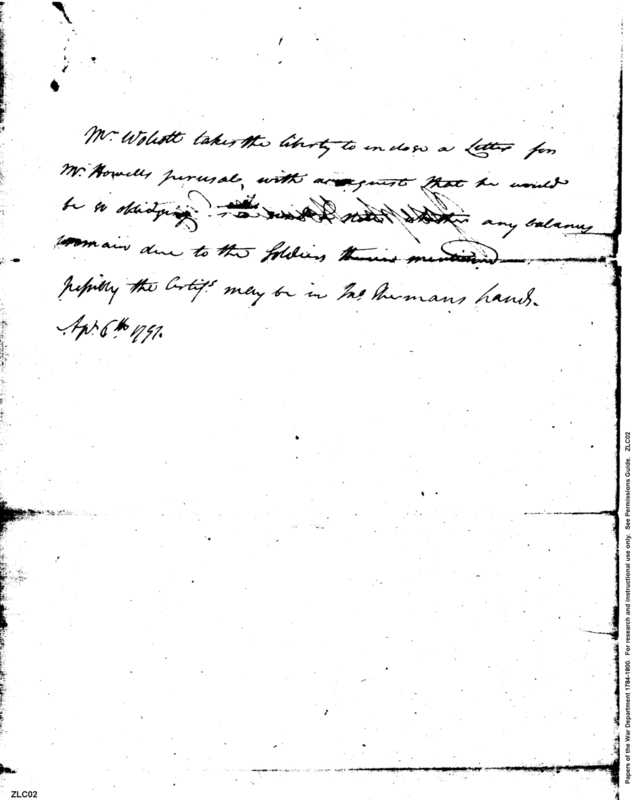 Mr Wolcott takes the liberty to inclose a Letter for
Mr Howells perusal, with a request that he would
be so obliging as note whether any balances
remain due to the Soldiers therein mentioned
possibly the Certifs may be in Jno Shermans hands.
Apl 6th 1791.
ZLC02
Papers of the War Department 1784-1800. For research and instructional use only. See Permissions Guide. ZLC02